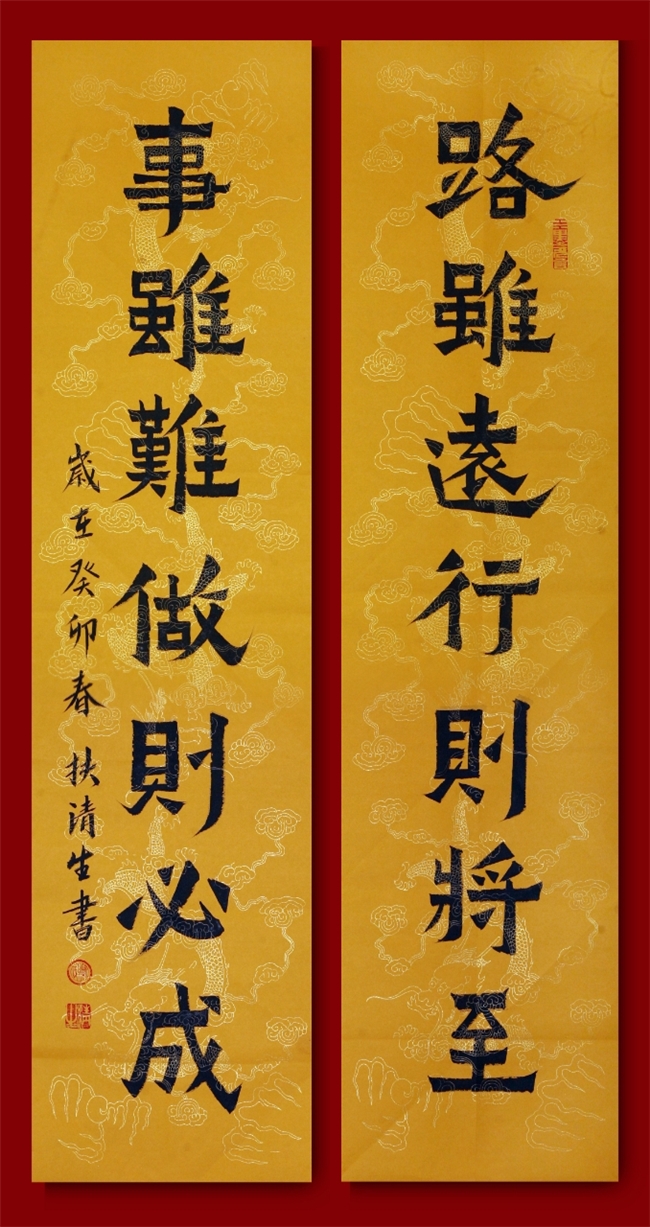 路雖遠行則將至
事雖難做則必成
歲在癸卯春扶清生書